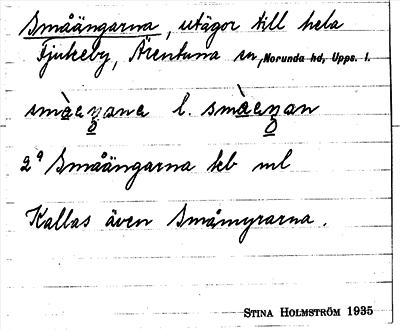 Småängarna, utägor till hela
Tjukeby, Ärentuna sn, Norunda hd, Upps. l.
l.
2ª Småängarna kb ml
Kallas även Småmyrarna.
STINA HOLMSTRÖM 1935